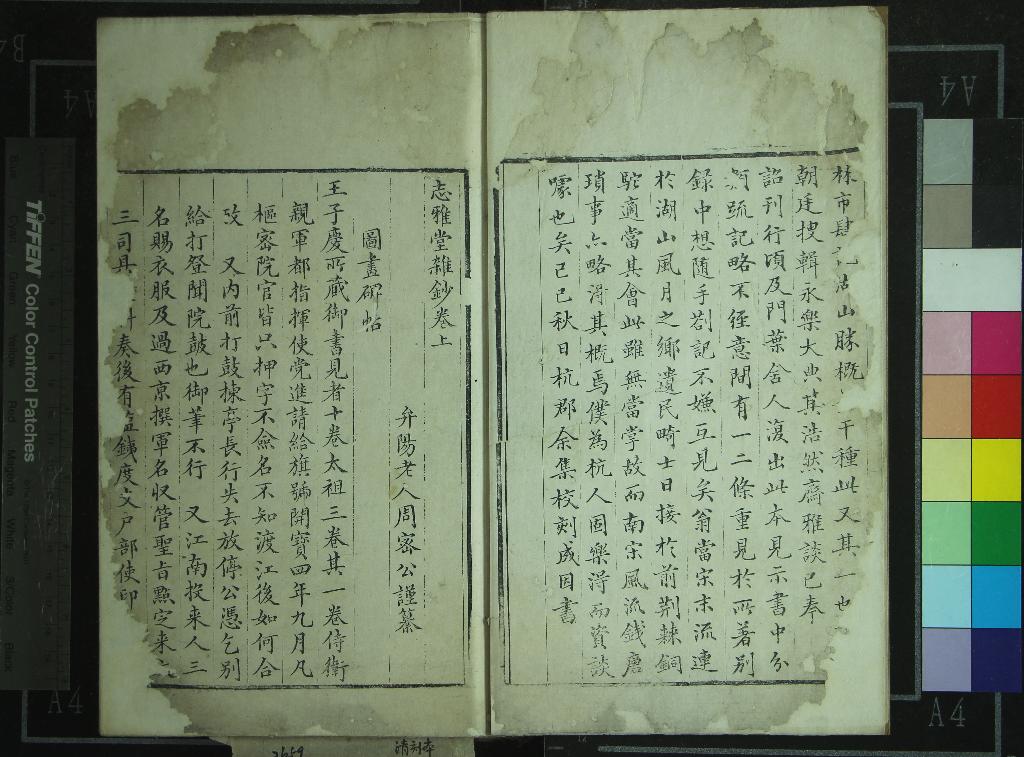 林市肆記沽山勝概　干種此又其一也
朝廷搜輯永樂大典其浩然齋雅談已奉
詔刊行頃及門葉舍人復出此本見示書中分
門疏記略不經意間有一二條重見於所著別
錄中想隨手劄記不嫌互見矣翁當宋末流連
於湖山風月之鄉遺民畸士日接於前荆棘銅
駝適當其會此雖無當掌故而南宋風流錢唐
瑣事亦略得其概焉僕為杭人固樂得而資談
噱也矣己巳秋日杭郡余集校刻成因書
志雅堂雜鈔卷上
弁陽老人周密公謹纂
圖畫碑帖
王子慶所蔵御書見者十卷太祖三卷其一卷侍衛
親軍都指揮使党進請給旗號開寶四年九月凡
樞密院官皆只押字不僉名不知渡江後如何合
攷　又内前打鼓揀亭長行失去放停公憑乞別
給打登聞院鼓也御筆不行　又江南投来人三
名賜衣服及過西京撰軍名収管聖旨㸃定来
三司具　計奏後有盐鐵度支户部使印
TIFFEN Color Control Patches
Blue
Cyan
Green
Yellow
Red
Magenta
White
3/Color
Black
A4
A4
A4
A4
B4
清刻本
2659